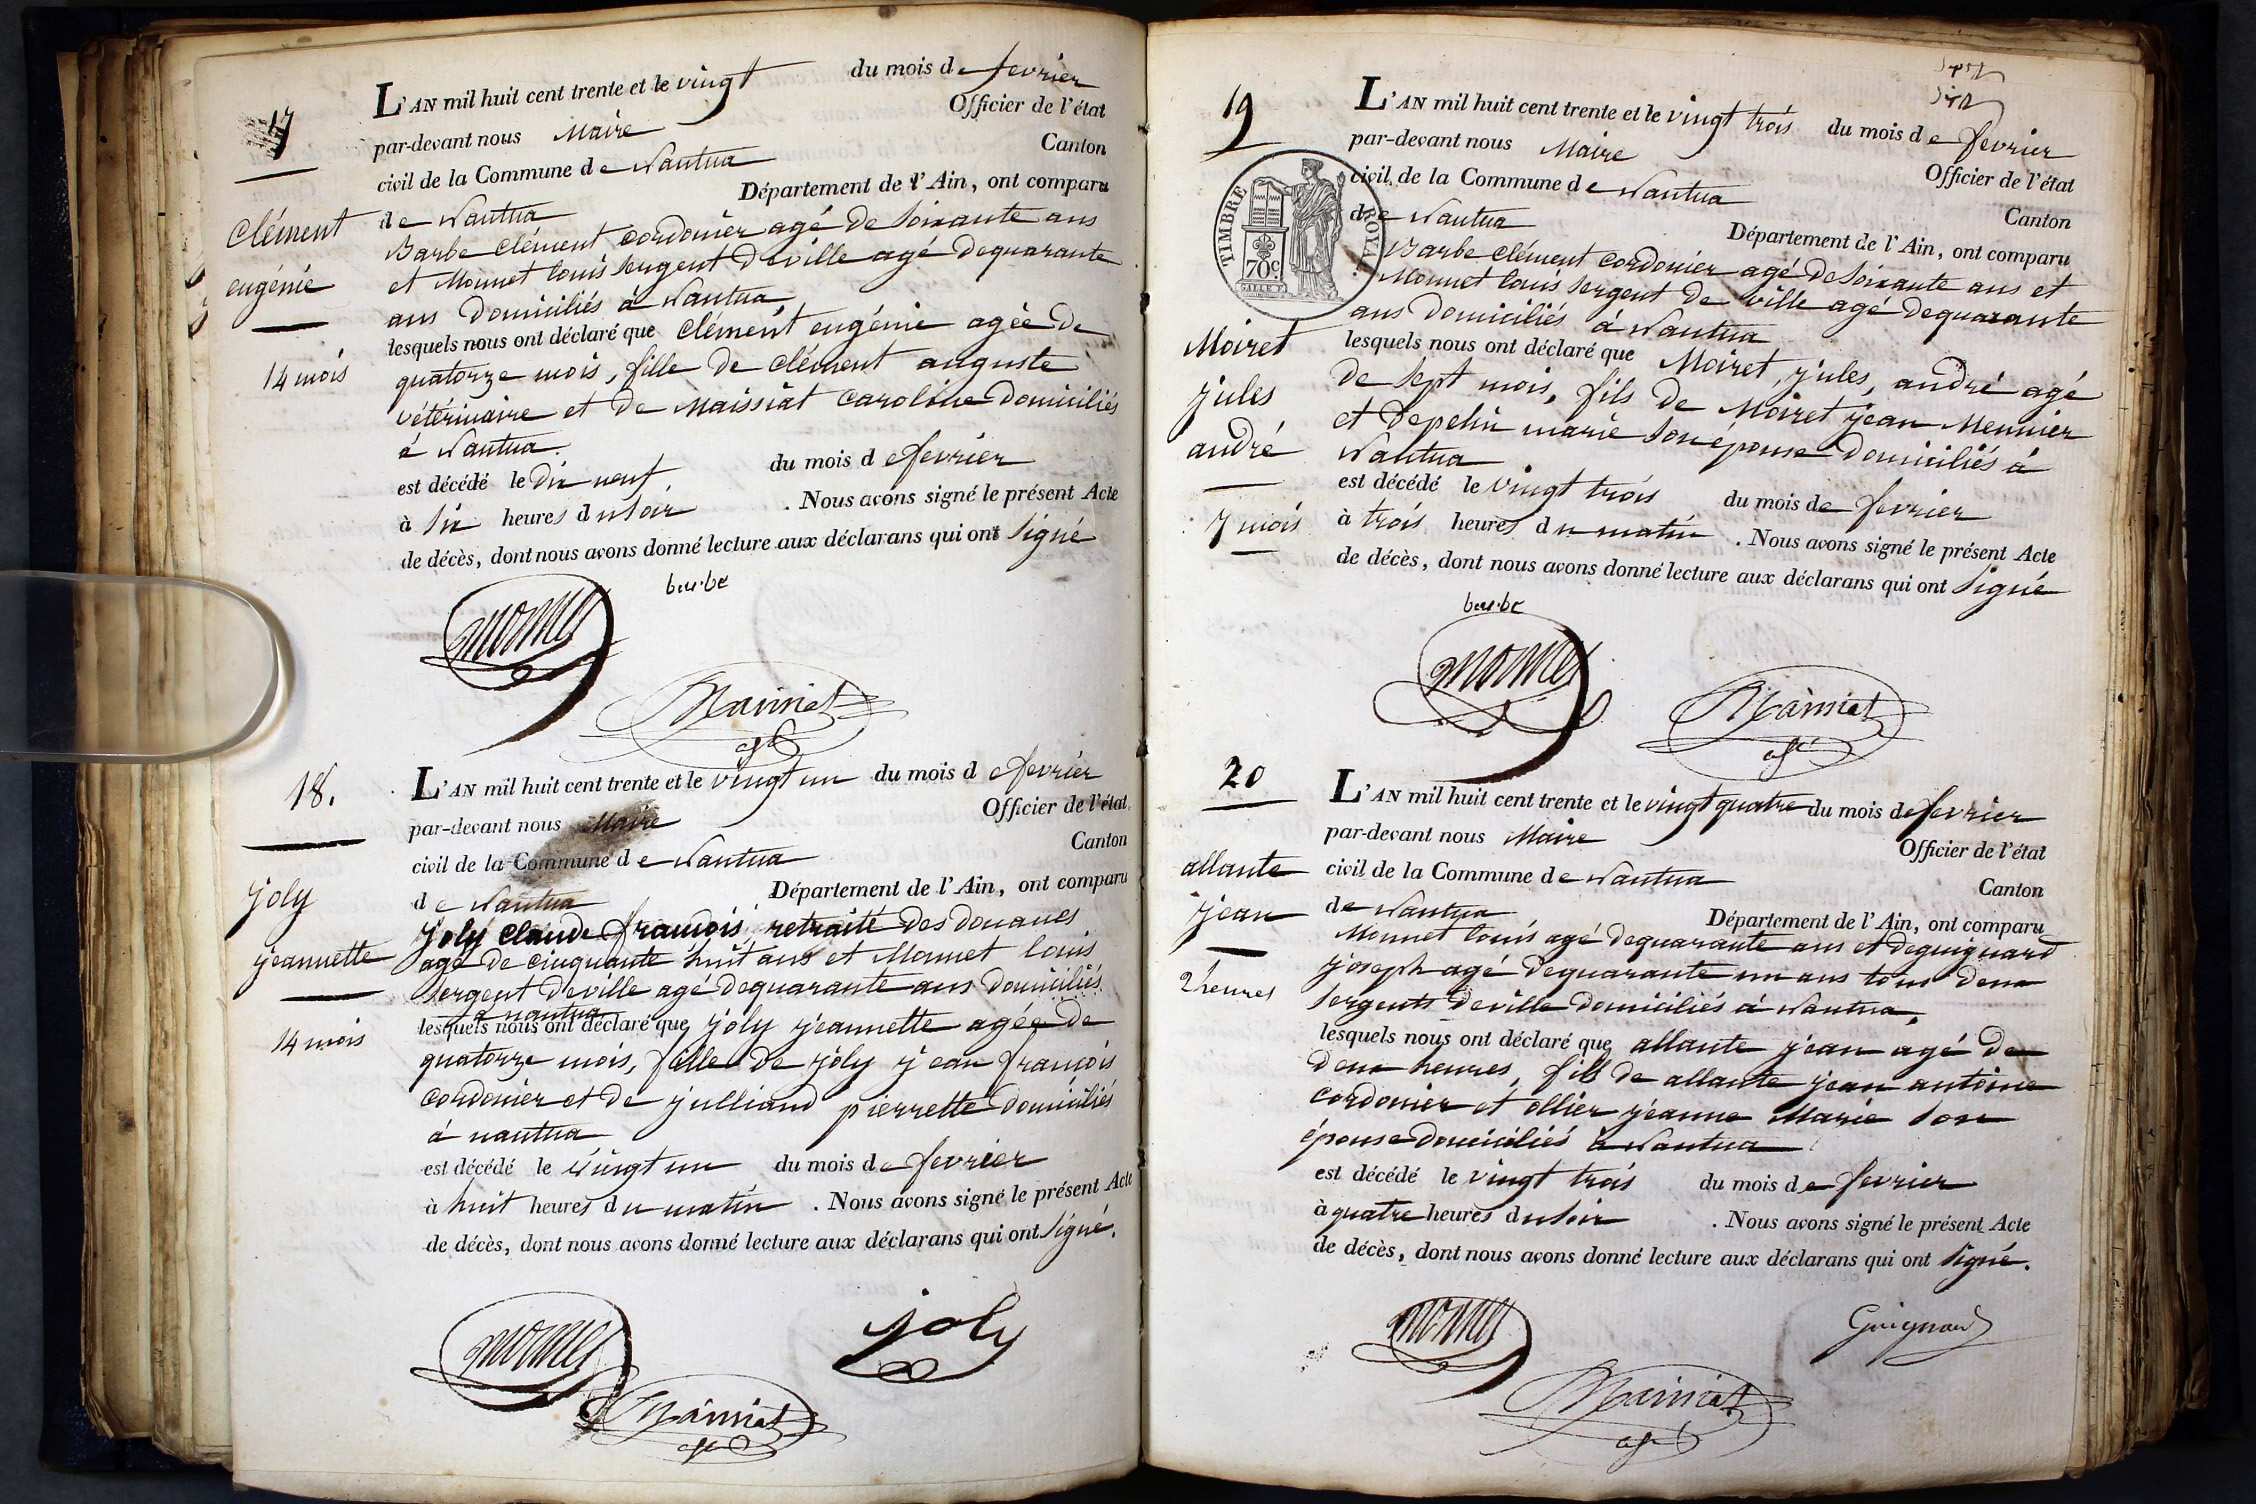 17
Clément
eugénie
14 mois
L'AN mil huit cent trente et le vingt du mois de fevrier
par-devant nous Maire Officier de l'état
civil de la Commune de Nantua Canton
de Nantua Département de l'Ain, ont comparu
Barbe Clément cordonier agé de soixante ans
et Monnet louis sergent de ville agé de quarante
ans domiciliés à Nantua
lesquels nous ont déclaré que Clément eugénie agée de
quatorze mois, fille de Clément auguste
vétérinaire et de Maissiat Caroline domiciliés
à Nantua.
est décédé le dix neuf du mois de fevrier
à six heures du soir . Nous avons signé le présent Acte
de décès, dont nous avons donné lecture aux déclarans qui ont signé
barbe
monnet
Maissiat
18.
joly
jeannette
14 mois
L'AN mil huit cent trente et le vingt un du mois de fevrier
par-devant nous Maire Officier de l'état
civil de la Commune de Nantua Canton
de Nantua Département de l'Ain, ont comparu
joly Claude françois retraité des douanes
agé de cinquante huit ans et Monnet louis
sergent de ville agé de quarante ans domiciliés
à nantua
lesquels nous ont déclaré que joly jeannette agée de
quatorze mois, fille de joly jean françois
cordonier et de julliand pierrette domiciliés
à nantua
est décédé le vingt un du mois de fevrier
à huit heures du matin . Nous avons signé le présent Acte
de décès, dont nous avons donné lecture aux déclarans qui ont signé.
monnet
joly
Maissiat
19
TIMBRE ROYAL
70c.
Moiret
jules
andré
7 mois
L'AN mil huit cent trente et le vingt trois du mois de fevrier
par-devant nous Maire Officier de l'état
civil de la Commune de Nantua Canton
de Nantua Département de l'Ain, ont comparu
Barbe Clément cordonier agé de soixante ans et
Monnet louis sergent de ville agé de quarante
ans domiciliés à Nantua
lesquels nous ont déclaré que Moiret, jules, andré agé
de sept mois, fils de Moiret jean Meunier
et Depelin marie son épouse domiciliés à
Nantua
est décédé le vingt trois du mois de fevrier
à trois heures du matin . Nous avons signé le présent Acte
de décès, dont nous avons donné lecture aux déclarans qui ont signé
barbe
monnet
Maissiat
20
allante
jean
2 heures
L'AN mil huit cent trente et le vingt quatre du mois de fevrier
par-devant nous Maire Officier de l'état
civil de la Commune de Nantua Canton
de Nantua Département de l'Ain, ont comparu
Monnet louis agé de quarante ans et deguignard
joseph agé de quarante un ans tous deux
sergents de ville domiciliés à Nantua.
lesquels nous ont déclaré que allante jean agé de
deux heures, fils de allante jean antoine
cordonier et ollier jeanne Marie son
épouse domiciliés à Nantua
est décédé le vingt trois du mois de fevrier
à quatre heures du soir . Nous avons signé le présent Acte
de décès, dont nous avons donné lecture aux déclarans qui ont signé.
monnet
Guignard
Maissiat